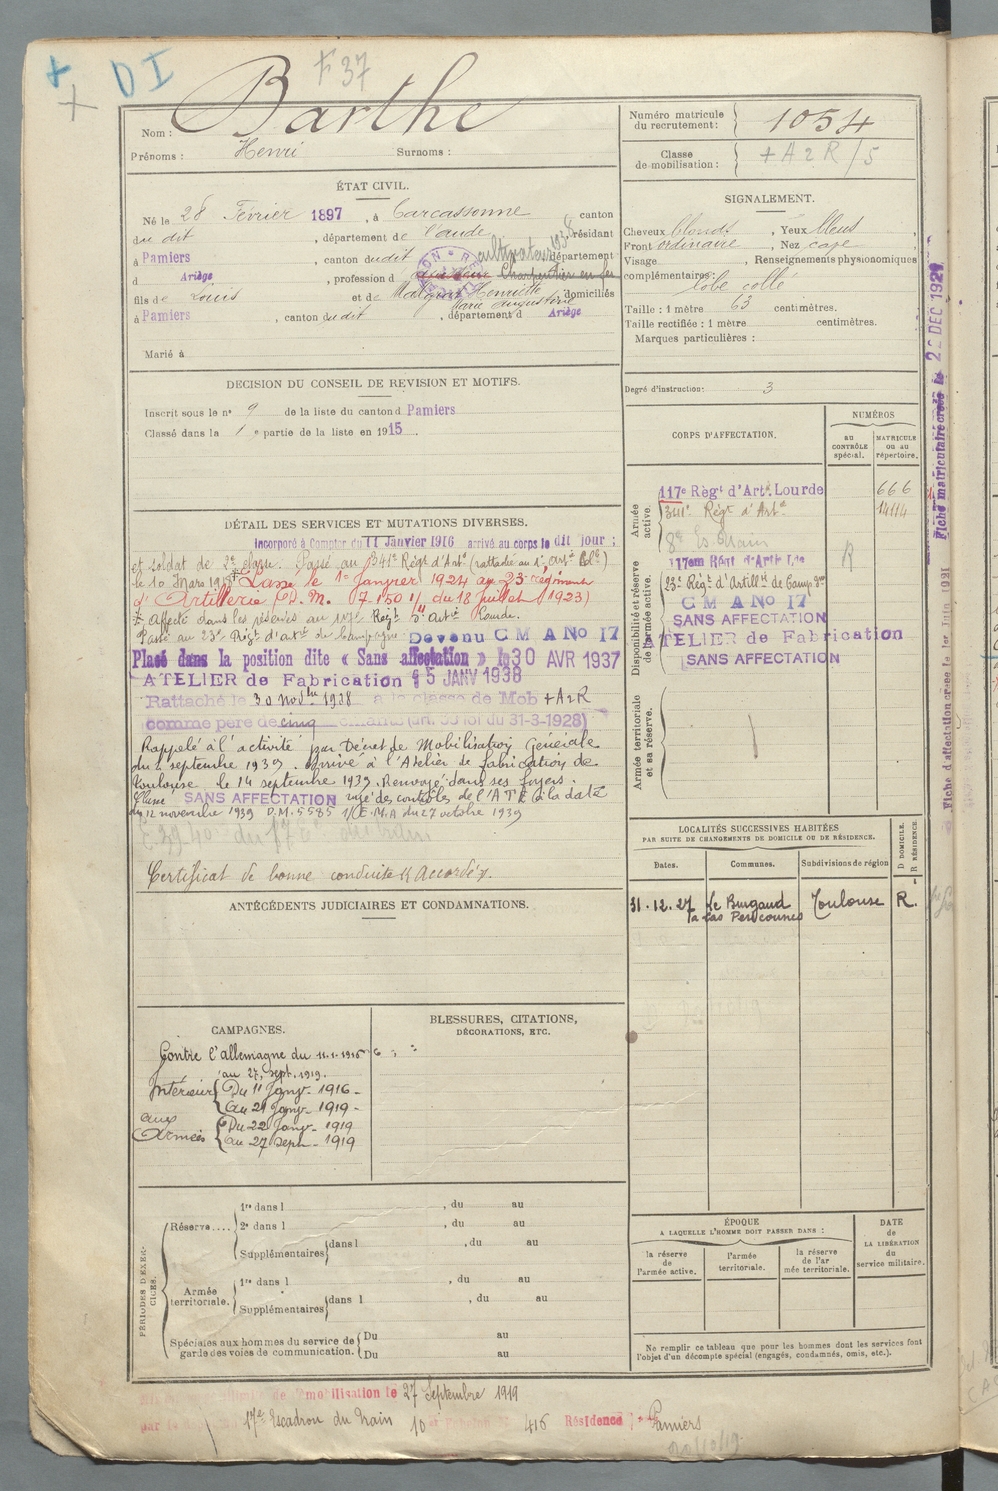 + D I F 37
+
Nom : Barthe
Prénoms : Henri Surnoms :
Numéro matricule du recrutement : 1054
Classe de mobilisation : + A 2 R / 5
ÉTAT CIVIL.
Né le 28 Février 1897, à Carcassonne canton
du dit, département de l'aude, résidant
à Pamiers, canton du dit département
d Ariège, profession d cultivateur Charpentier en fer
fils de Louis et de Henriette Marie augustine domiciliés
à Pamiers, canton du dit, département d Ariège
Marié à
SIGNALEMENT.
Cheveux blonds, Yeux bleus
Front ordinaire, Nez cave
Visage, Renseignements physionomiques
complémentaires : lobe collé
Taille : 1 mètre 63 centimètres.
Taille rectifiée : 1 mètre centimètres.
Marques particulières :
Degré d'instruction : 3
DECISION DU CONSEIL DE REVISION ET MOTIFS.
Inscrit sous le n° 9 de la liste du canton d Pamiers
Classé dans la 1 e partie de la liste en 1915.
CORPS D'AFFECTATION.
NUMÉROS
au CONTRÔLE spécial.
MATRICULE OU AU répertoire.
Armée active.
117e Régt d'Artie Lourde 666
341e Régt d'Arte 14114
8e Es. Train
117em Régt d'Artie Lde R
Disponibilité et réserve de l'armée active.
23e Régt d'Artillie de Camp gne
C M A No 17
SANS AFFECTATION
ATELIER de Fabrication
SANS AFFECTATION
Armée territoriale et sa réserve.
DÉTAIL DES SERVICES ET MUTATIONS DIVERSES.
Incorporé à Compter du 11 Janvier 1916 arrivé au corps le dit jour :
et soldat de 2e classe. Passé au 341e Régt d'Arte (rattachée au 1er Arte Cle)
le 10 Mars 19 Passé le 1er Janvier 1924 au 23e régiment
d'Artillerie (D. M. 7.150 1/ du 18 juillet 1923)
Affecté dans les réserves au 117e Régt d'Artie Lourde.
Passé au 23e Régt d'art de Campagne Devenu C M A No 17
Placé dans la position dite « Sans affectation » le 30 AVR 1937
ATELIER de Fabrication 15 JANV 1938
Rattaché le 30 Novbre 1938 à la classe de Mob + A 2 R
comme père de cinq enfants (art. 58 loi du 31-3-1928)
Rappelé à l'activité par Décret de Mobilisation Générale
du 2 septembre 1939. Arrivé à l'Atelier de fabrication de
Toulouse le 14 septembre 1939. Renvoyé dans ses foyers.
Classé SANS AFFECTATION rayé des contrôles de l'A T E à la date
du 12 novembre 1939 D.M. 5585 1/E.M.A du 27 octobre 1939
Certificat de bonne conduite « Accordé ».
ANTÉCÉDENTS JUDICIAIRES ET CONDAMNATIONS.
LOCALITÉS SUCCESSIVES HABITÉES
PAR SUITE DE CHANGEMENTS DE DOMICILE OU DE RÉSIDENCE.
Dates. Communes. Subdivisions de région D DOMICILE. R RÉSIDENCE.
31.12.27 Le Burgaud Toulouse R.
CAMPAGNES.
Contre l'allemagne du 11.1.1916
au 27, sept. 1919.
Intérieur Du 11 Janv 1916 -
au 21 Janv 1919 -
aux Armées Du 22 Janv 1919
au 27 Sept 1919
BLESSURES, CITATIONS,
DÉCORATIONS, ETC.
PÉRIODES D'EXERCICES.
Réserve....
1re dans l , du au
2e dans l , du au
Supplémentaires dans l , du au
Armée territoriale.
1re dans l , du au
Supplémentaires dans l , du au
Spéciales aux hommes du service de garde des voies de communication. Du au
Du au
ÉPOQUE
A LAQUELLE L'HOMME DOIT PASSER DANS :
la réserve de l'armée active.
l'armée territoriale.
la réserve de l'armée territoriale.
DATE de LA LIBÉRATION du service militaire.
Ne remplir ce tableau que pour les hommes dont les services font
l'objet d'un décompte spécial (engagés, condamnés, omis, etc.).
mobilisation le 27 Septembre 1919
par le 17e Escadron du Train 10 416 Résidence : Pamiers
20/10/19
Fiche matriculaire créée le 22 DEC 1921
Fiche d'affectation créée le 1er Juin 1921